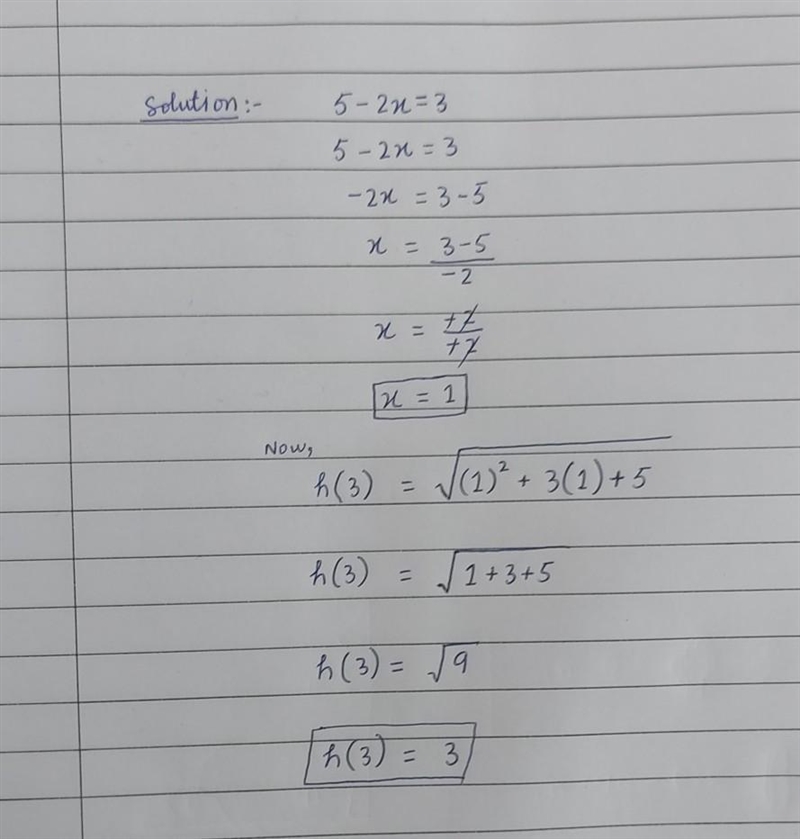 Solution:- 5 - 2x = 3
5 - 2x = 3
-2x = 3 - 5
x = (3-5)/(-2)
x = +2/+2
x = 1
Now,
h(3) = √((1)² + 3(1) + 5)
h(3) = √(1+3+5)
h(3) = √9
h(3) = 3